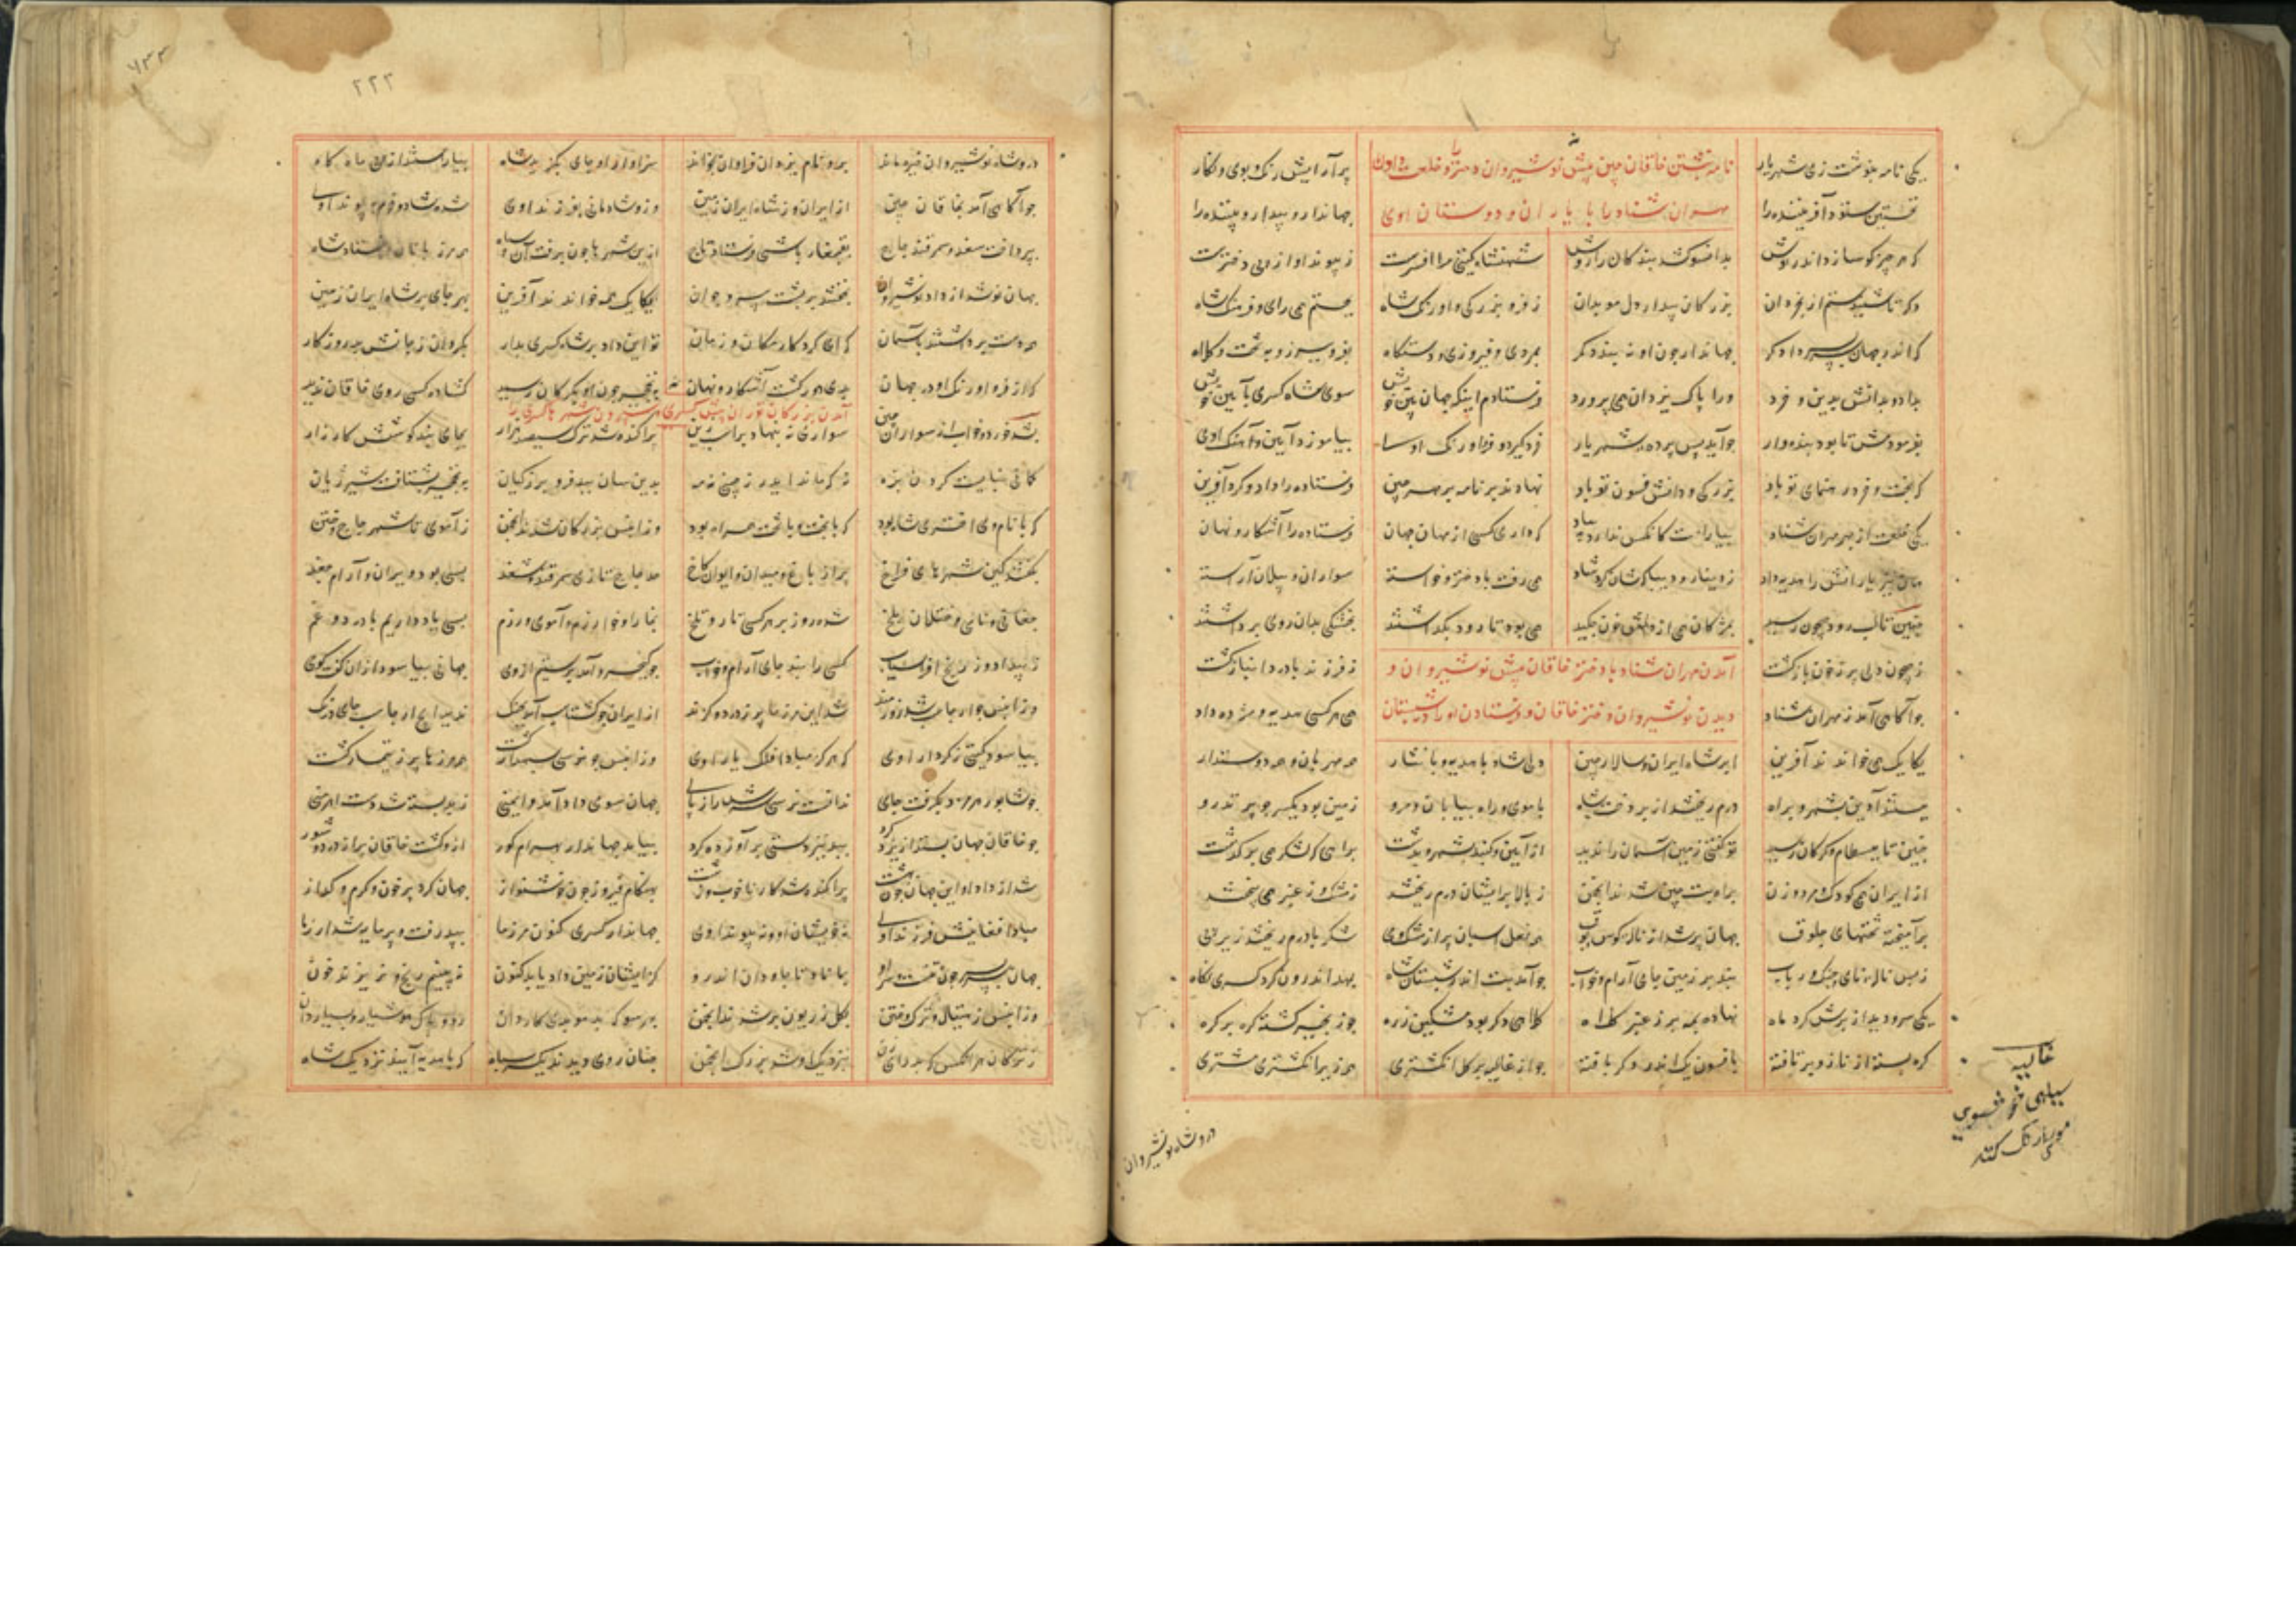 یکی نامه بنوشت زی شهریار
نامه نبشتن خاقان چین پیش نوشیروان و دختر را و خلعت دادن
پر آرایش رنگ و بوی و نگار
نخستین ستود آفریننده را
مهران ستاد را با یاران و دوستان اوی
جهاندار و بیدار و بیننده را
که هر چیز کو سازد اندر بوش
بدانسو کشد بندگان را روش
شهنشاه گیتی مرا افسرست
ز پیوند او از پی دخترست
که تا شنیدستم از بخردان
بزرگان بیدار دل موبدان
ز فر و بزرگی و اورنگ شاه
بجستم همی رای و فرهنگ شاه
که اندر جهان سربسر دادگر
جهاندار چون او نبندد کمر
بمردی و فیروزی و دستگاه
بفر و ببرز و به تخت و کلاه
بداد و بدانش بدین و خرد
ورا پاک یزدان همی پرورد
فرستادم اینک جهان بین خویش
سوی شاه کسری بآیین خویش
بفرمودمش تا بود بنده وار
چو آید پس پرده شهریار
خرد گیرد و فر و اورنگ او
بیاموزد آیین و آهنگ اوی
که بخت و خرد رهنمای تو باد
بزرگی و دانش فسون تو باد
نهادند بر نامه بر مهر چین
فرستاده را داد و کرد آفرین
یکی خلعت از بهر مهران ستاد
بیاراست کانکس ندارد بیاد
که دادی کسی از مهان جهان
فرستاده را آشکار و نهان
همان نیز یارانش را هدیه داد
ز دینار و دیبا شان کرد شاد
همی رفت با دختر و خواسته
سواران و پیلان آراسته
چنین تا لب رود جیحون رسید
بمژگان همی از دلش خون چکید
همی بود تا رود بگذاشتند
بخشکی بدان روی برداشتند
ز جیحون دلی پر ز خون بازگشت
آمدن مهران ستاد با دختر خاقان پیش نوشیروان و
ز فرزند با درد انباز گشت
چو آگاهی آمد ز مهران ستاد
دیدن نوشیروان دختر خاقان و فرستادن او را در شبستان
همی هر کسی هدیه و مژده داد
یکایک همی خواندند آفرین
ابر شاه ایران و سالار چین
دلی شاد با هدیه و با نثار
همه مهربان و همه دوستدار
ببستند آذین بشهر و براه
درم ریختند از بر دخت شاه
بآموی و راه بیابان و مرو
زمین بود یکسر چو پر تذرو
چنین تا ببسطام و گرگان رسید
تو گفتی زمین آسمان را ندید
از آیین و گنبد شهر و بدشت
براهی که لشکر همی برگذشت
از ایران همی کودک و مرد و زن
براه بت چین شدند انجمن
ز بالا بر ایشان درم ریختند
ز مشک و ز عنبر همی بیختند
برآمیخته طشتهای خلوق
جهان پر شد از ناله کوس و بوق
همه نعل اسبان پر از مشک و می
شکر با درم ریخته زیر پی
ز بس ناله نای و چنگ و رباب
نبد بر زمین جای آرام و خواب
چو آمد بت اندر شبستان شاه
بمهد اندرون کرد کسری نگاه
یکی سرو دید از برش گرد ماه
نهاده بمه بر ز عنبر کلاه
کلاهی دگر بود مشکین زره
چو زنجیر گشته گره بر گره
گره بسته از تار و بر تافته
بافسون یک اندر دگر بافته
چو از غالیه بر گل انگشتری
همه زیر انگشتری مشتری
غالیه
سیاهی خوشبوی
در و شاه نوشیروان
۲۲۳
۷۳۳
در و شاه نوشیروان خیره ماند
برو نام یزدان فراوان بخواند
سزاوار او جای بگزید شاه
بیاراستند از پی ماه گاه
چو آگاهی آمد بخاقان چین
از ایران و ز شاه ایران زمین
وز و شادمانی بفرزند اوی
شده شاد و خرم بپیوند اوی
بپرداخت سغد و سمرقند و چاچ
بقجغار باشی فرستاد تاج
ازین شهرها چون برفت آن سپاه
همی مرزبانان فرستاد شاه
جهان نو شد از داد نوشیروان
بخفتند بر دشت پیر و جوان
یکایک همی خواندند آفرین
بهر جای بر شاه ایران زمین
همه دست برداشته بآسمان
که ای کردگار مکان و زمان
تو این داد بر شاه کسری بدار
بگردان ز جانش بد روزگار
که از فر و اورنگ او در جهان
بدی دور گشت آشکار و نهان
بنخچیر چون او بگرگان رسید
گشاده کسی روی خاقان ندید
آمدن بزرگان توران پیش کسری
بشد خورد و خواب از سواران چین
سواری نه بنهاد بر اسب زین
پراگنده شد ترک سیصد هزار
بجای نبد کوشش کارزار
کمانی نبایست کردن بزه
نه که ماند ایدر ز چین نه مه
بدین سان ببد فر و برز کیان
به نخچیر بشتافت شیر ژیان
که با نام وی اختری شاه بود
که با بخت و با تخت همراه بود
وز آنپس بزرگان شدند انجمن
ز آموی تا شهر چاچ و ختن
بگفتند کین شهرهای فراخ
پر از باغ و میدان و ایوان و کاخ
همه چاچ تا زی سمرقند و سغد
بسی بود ویران و آرام جغد
چغانی و شنانی و ختلان و بلخ
شده روز بر هر کسی تار و تلخ
بخارا و خوارزم و آموی و زم
بسی یاد داریم با درد و غم
ز بیداد و ز رنج افراسیاب
کسی را نبد جای آرام و خواب
چو کیخسرو آمد برستیم ازوی
جهانی بیاسود از آن گفت و گوی
وز آنپس چو ارجاسب شد زورمند
شد این مرزها پر ز درد و گزند
از ایران چو گشتاسب آمد بجنگ
ندید ایچ ارجاسب جای درنگ
بیاسود گیتی ز کردار اوی
که هرگز مبادا فلک یار اوی
وز آنپس چو نرسی سپهدار گشت
همه روزها پر ز تیمار گشت
چو شاپور هرمزد بگرفت جای
ندانست نرسی سرش را ز پای
جهان سوی داد آمد و ایمنی
ز بد بسته شد دست اهرمنی
چو خاقان جهان بستد از یزدگرد
ببد تیز دستی برآورده گرد
بیامد جهاندار بهرام گور
از و گشت خاقان پر از درد و شور
شد از داد او این جهان چون بهشت
پراگنده شد کار ناخوب و زشت
بهنگام فیروز چون خوشنواز
جهان کرد پر خون و گرم و گداز
مبادا فغانیش فرزند اوی
نه خویشان او و نه پیوند اوی
جهاندار کسری کنون مرز ما
بپذرفت و پرمایه شد ارز ما
بماناد تا جاودان اندر او
کز ایشان زمین داد یابد کنون
نه بینیم رنج و نه ریزند خون
وز آنپس ز هیتال و ترک و ختن
بگلزریون بر شدند انجمن
بهر سو که بد موبدی کاردان
ز ترکان هر آنکس که بد رای زن
چنان روی دیدند یکسر سپاه
که با هدیه آیند نزدیک شاه